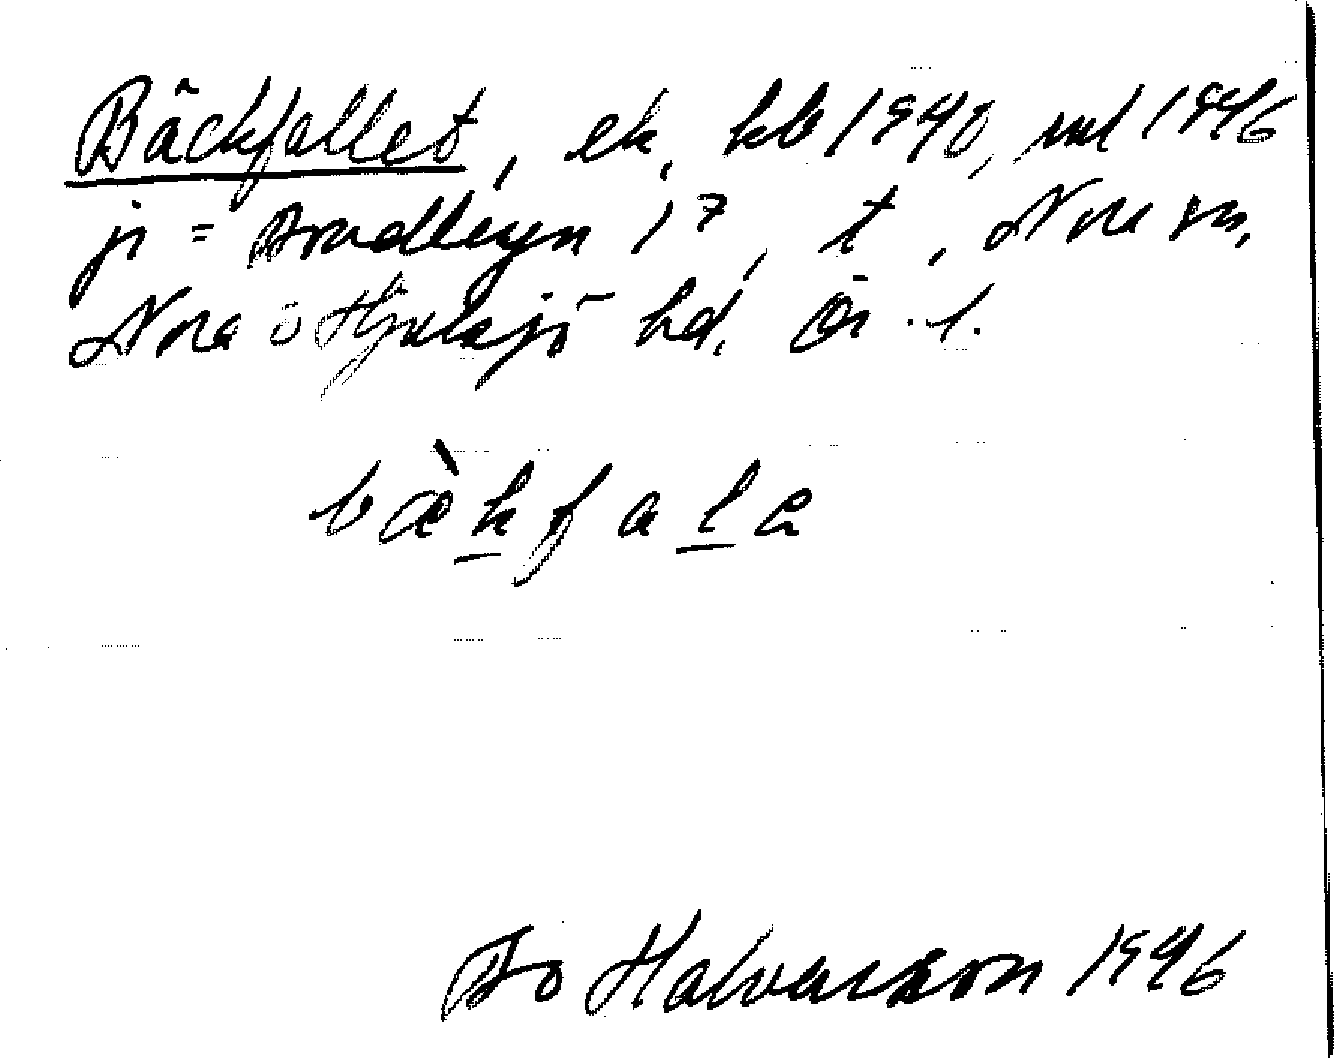 Bäckfallet, ek, kb 1940, uul 1946
ji = Bradlegn 1⁷, t, Nora sn,
Nora o Hjulsjö hd. Ör. l.
bæ̀kfala
Bo Halvarson 1946